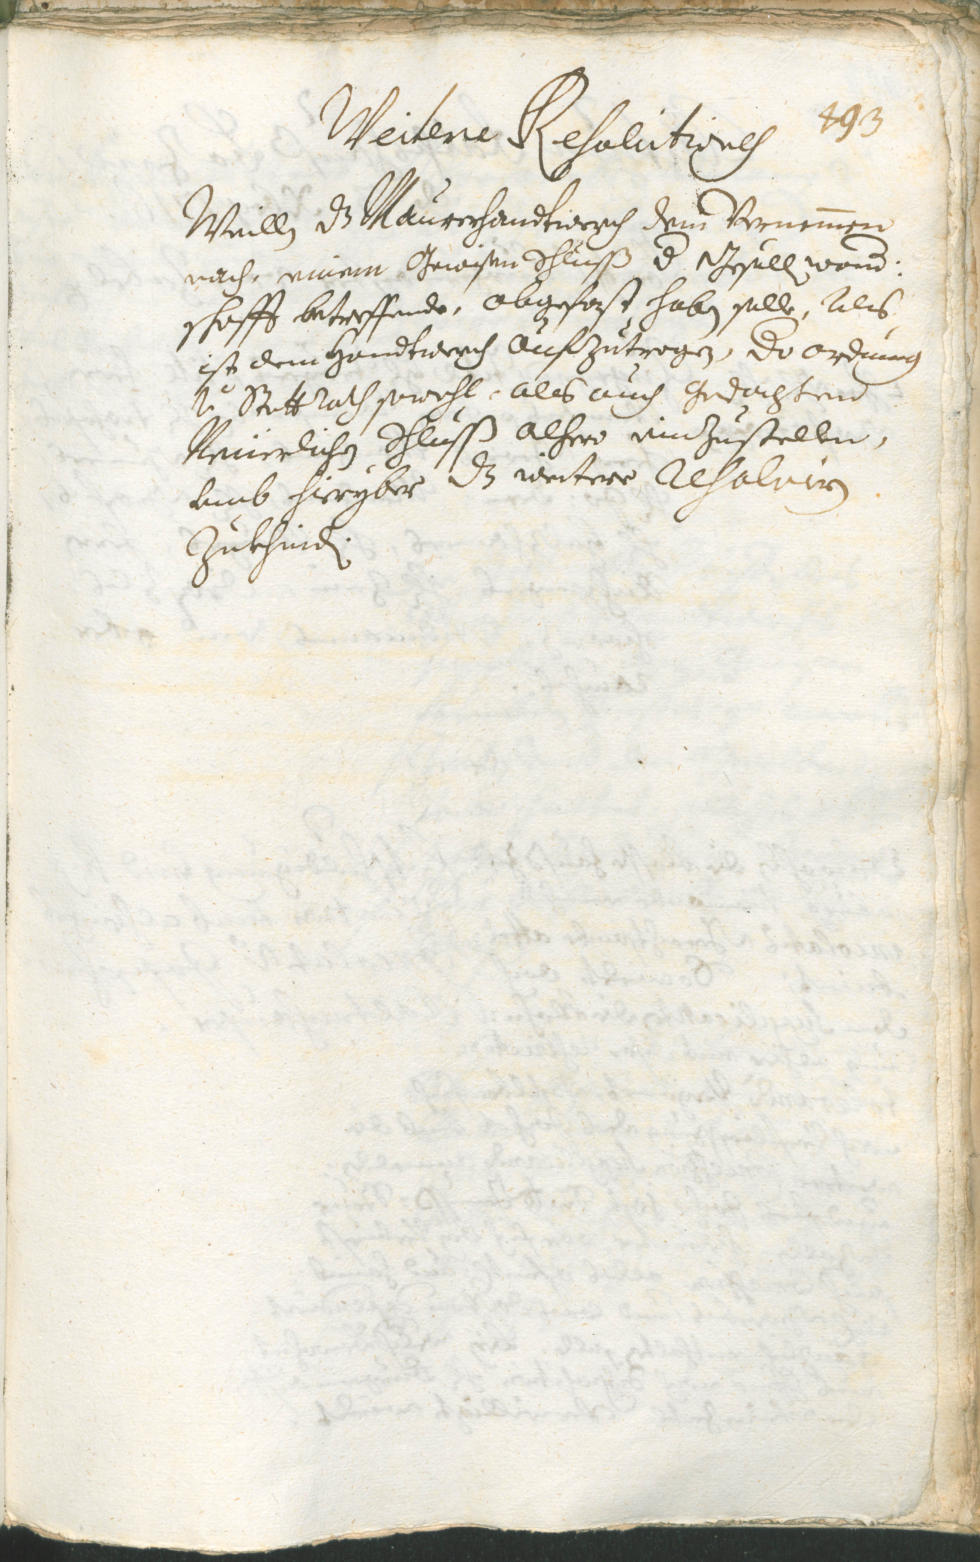 493
Weitere Resolutiones
Weillen dz Maurerhandtwerch dem Vernemmen
nach, einem Gewisen Schluß d Gesellen wand:
schafft betreffendt, abgefast haben solle, Als
ist dem Handtwerch aufzutragen, die ordnung
Statt Rath sowohl, als auch Gedachten
Neüerlichen Schluß alhero einzustellen,
umb hieryber dz weitere Resolvieren
zukhinden.